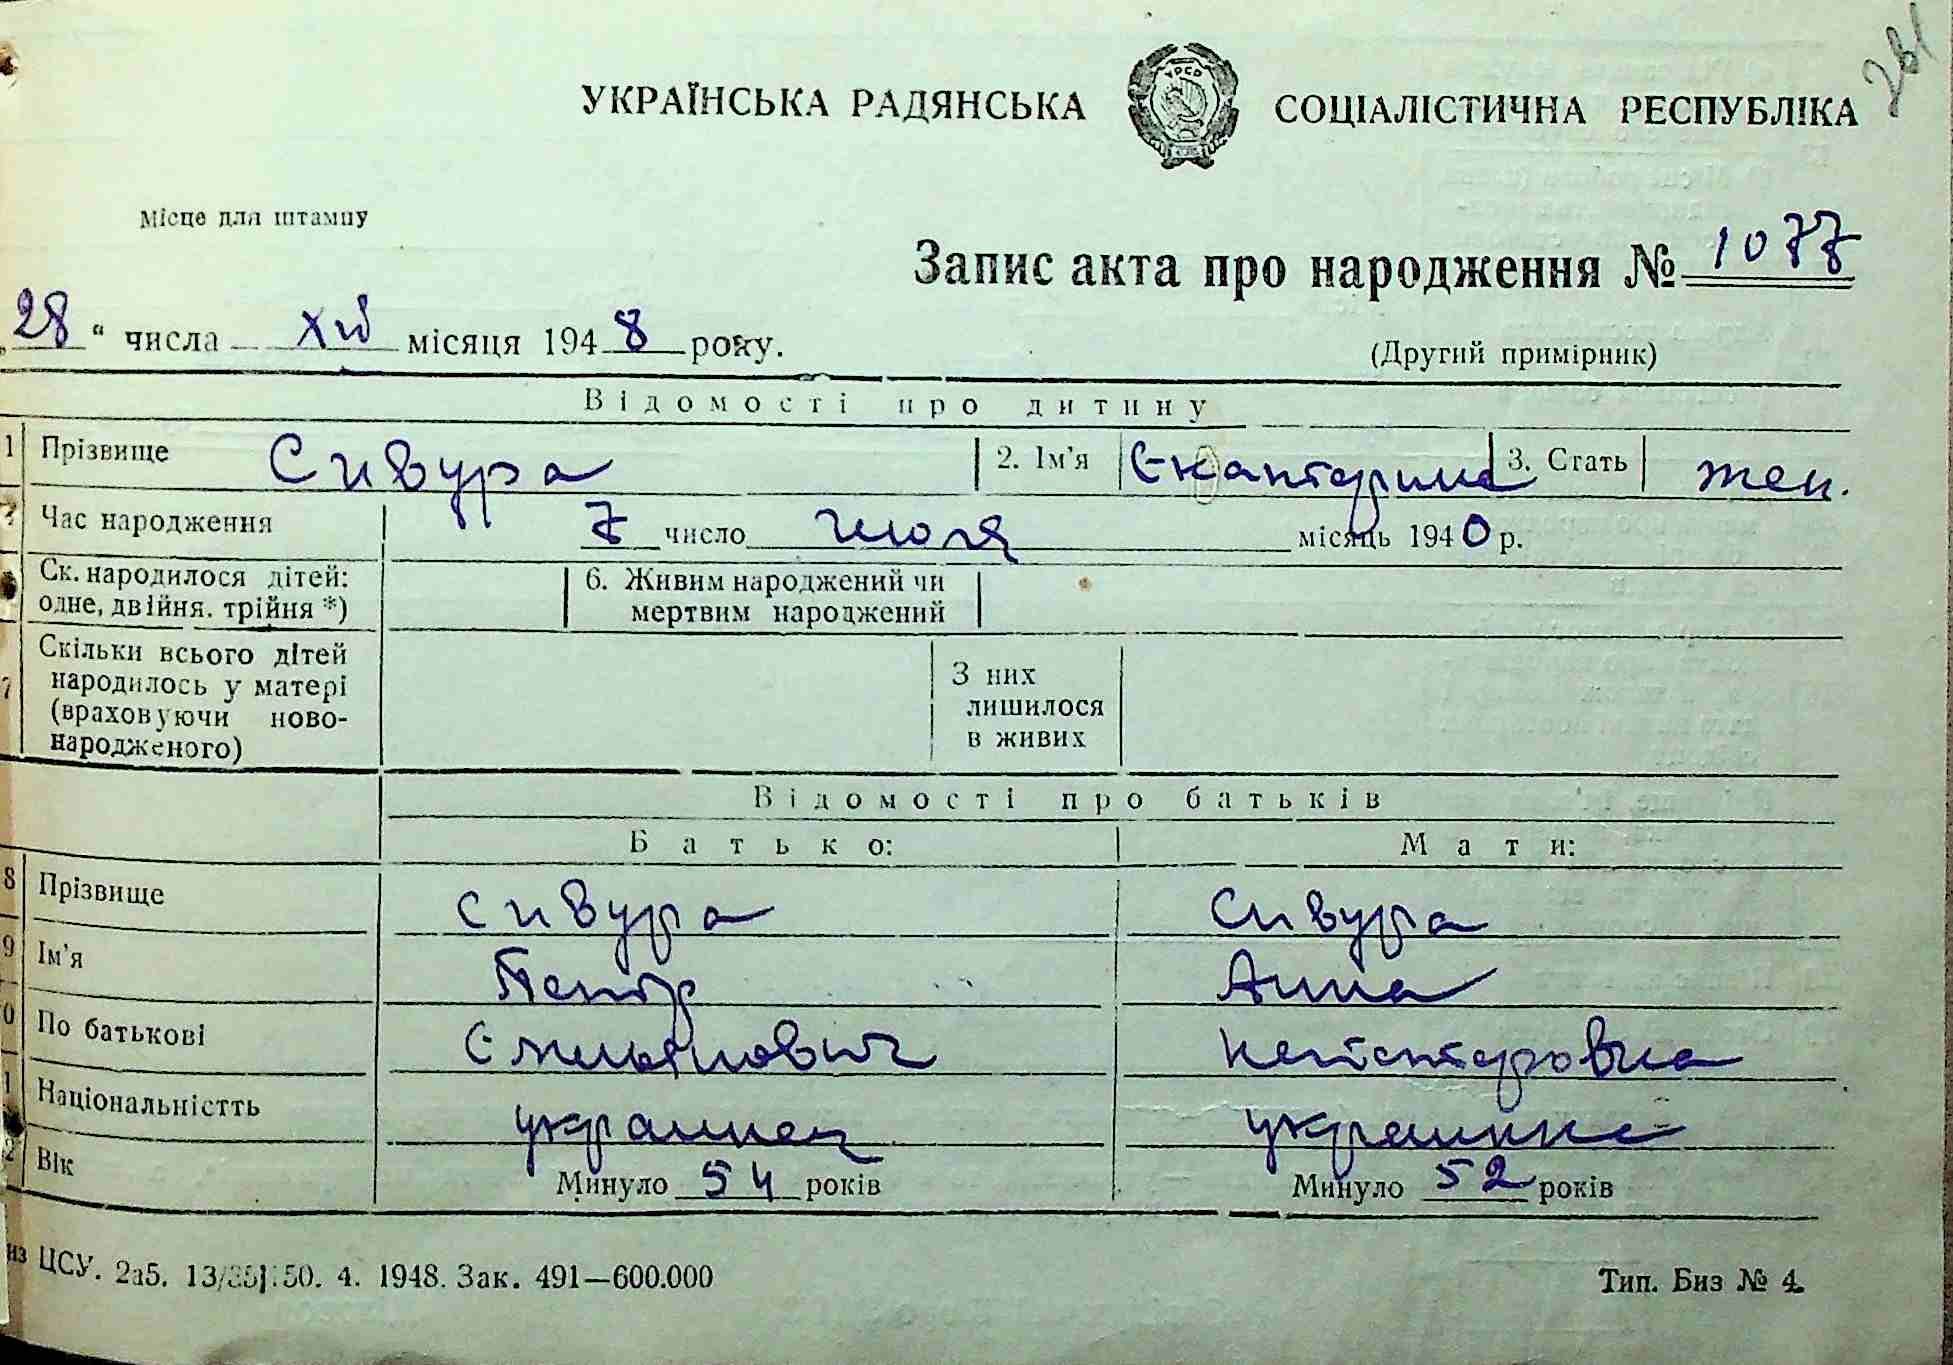 281
УКРАЇНСЬКА РАДЯНСЬКА УРСР СОЦІАЛІСТИЧНА РЕСПУБЛІКА
Місце для штампу
Запис акта про народження № 1077
„28“ числа XII місяця 1948 року.
(Другий примірник)
Відомості про дитину
1 Прізвище Сивура 2. Ім'я Екатерина 3. Стать жен.
Час народження 7 число июля місяць 1940 р.
Ск. народилося дітей: одне, двійня, трійня *) 6. Живим народжений чи мертвим народжений
7 Скільки всього дітей народилось у матері (враховуючи ново-народженого) З них лишилося в живих
Відомості про батьків
Батько: Мати:
8 Прізвище Сивура Сивура
9 Ім'я Петр Анна
0 По батькові Емельянович Нестеровна
1 Національністть украинец украинка
2 Вік Минуло 54 років Минуло 52 років
из ЦСУ. 2а5. 13/35 50. 4. 1948. Зак. 491—600.000
Тип. Биз № 4.